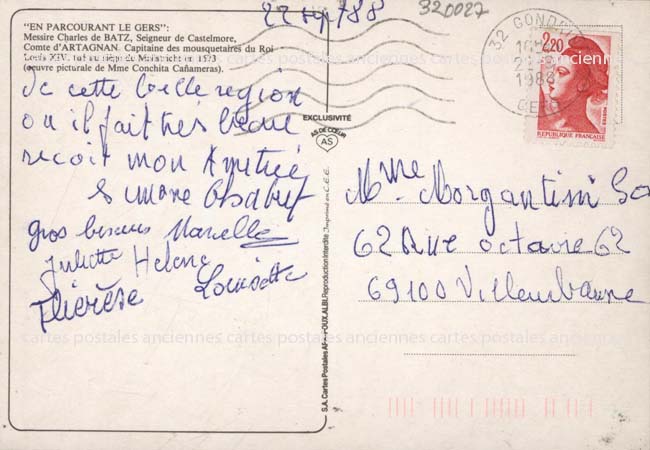 22 sept 88
320027
"EN PARCOURANT LE GERS":
Messire Charles de BATZ, Seigneur de Castelmore,
Comte d'ARTAGNAN. Capitaine des mousquetaires du Roi
Louis XIV, tué au siège de Maëstricht en 1673
(œuvre picturale de Mme Conchita Cañameras).
De cette belle région
ou il fait très beau
reçoit mon Amitié
Simone
gros bisous Marcelle
Juliette Helene
Thérèse Louisette
EXCLUSIVITÉ
AS DE CŒUR
AS
S.A. Cartes Postales ALBI Reproduction Interdite Imprimé en C.E.E.
32 GONDRIN
1988
GERS
2,20
REPUBLIQUE FRANÇAISE
Mme Morgantini
62 Rue octavie 62
69100 Villeurbanne
cartes postales anciennes cartes postales anciennes cartes postales anciennes